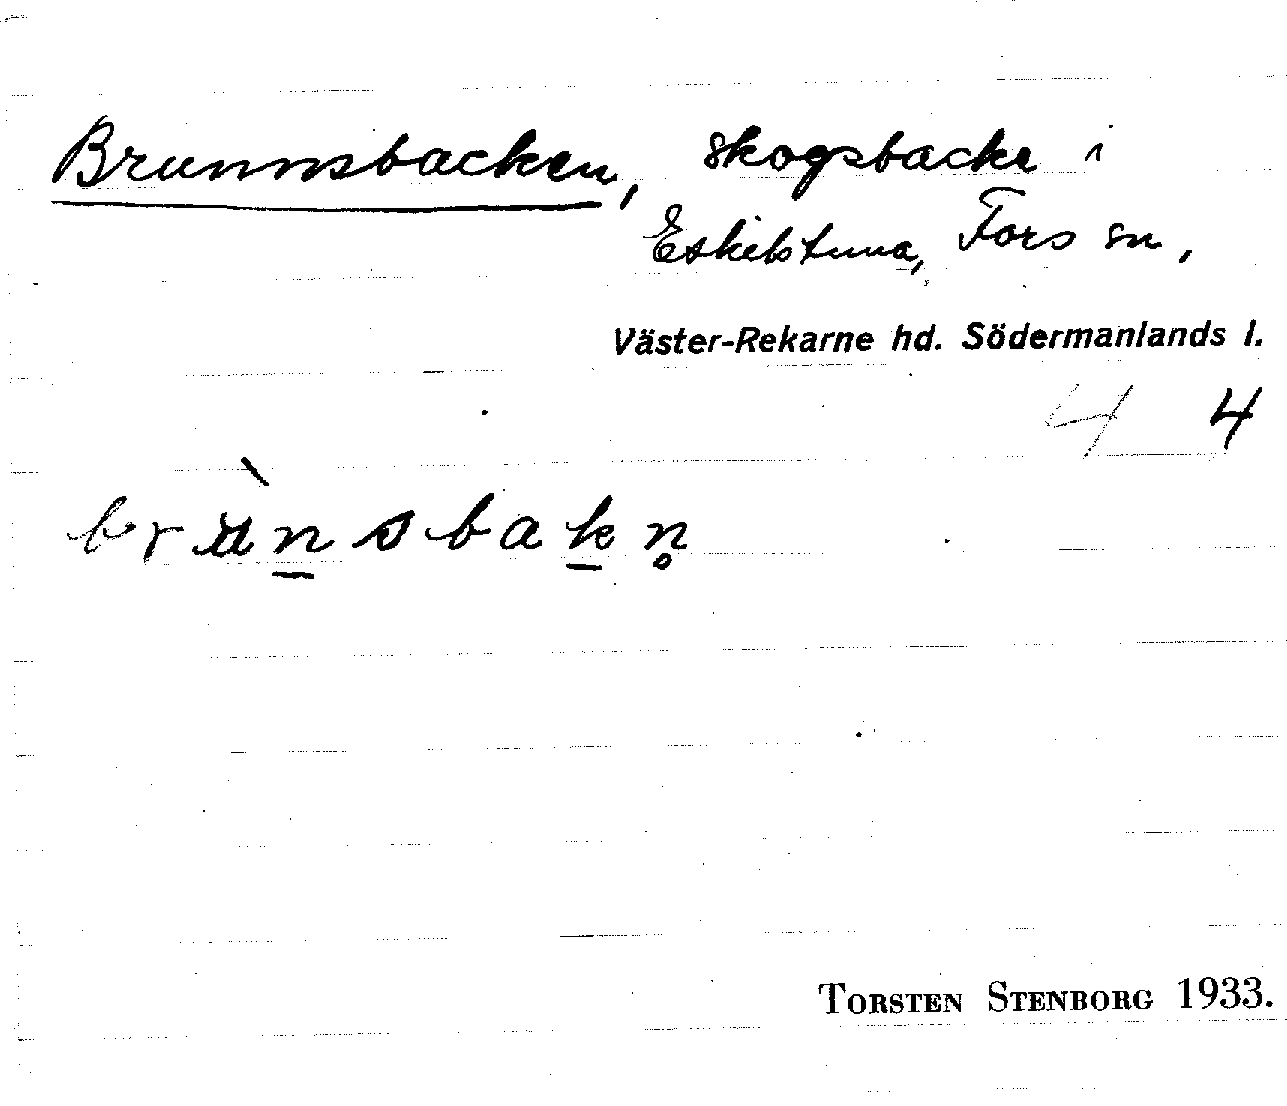 Brunnsbacken, skogsbacke i
Eskilstuna, Fors sn,
Väster-Rekarne hd. Södermanlands l.
4 4
brù̀n̲sbak̲n̥
Torsten Stenborg 1933.